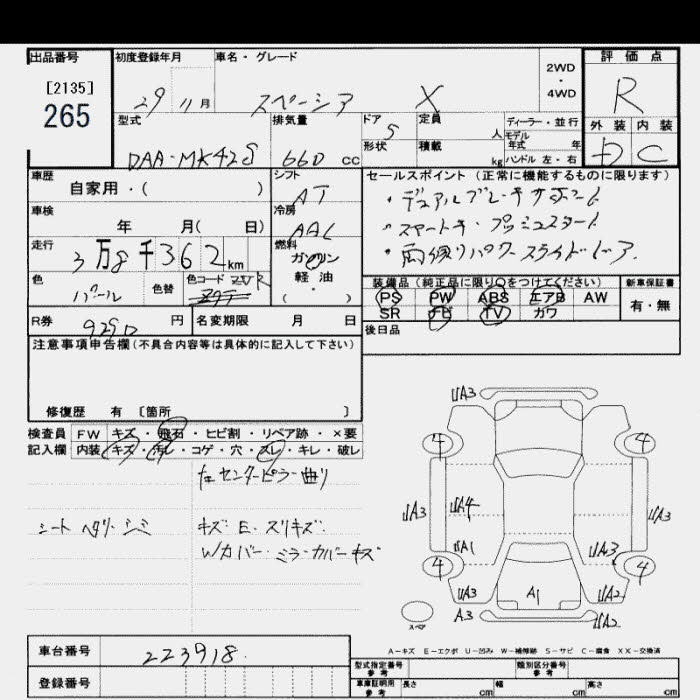 出品番号 初度登録年月 車名・グレード 2WD・4WD 評価点
[2135]
265
29 11月 スペーシア X R
型式 排気量 ドア 5 定員 人 ディーラー・並行 外装 内装
形状 積載 kg モデル年式 年 ハンドル 左・右
DAA-MK42S 660 cc D C
車歴 自家用・( ) シフト AT セールスポイント(正常に機能するものに限ります)
・デュアルブレーキサポート
車検 年 月( 日) 冷房 AAC ・スマートキー・プッシュスタート
走行 3万8千362km 燃料 ガソリン 軽油・( ) ・両側パワースライドドア
色 パール 色替 色コード ZVR 装備品(純正品に限り○をつけてください) 新車保証書
PS PW ABS エアB AW 有・無
SR TV カワ
R券 9290円 名変期限 月 日 後日品
注意事項申告欄(不具合内容等は具体的に記入して下さい)
修復歴 有 〔箇所 〕
検査員 FW キズ・飛石・ヒビ割・リペア跡・×要
記入欄 内装 キズ・汚レ・コゲ・穴・スレ・キレ・破レ
左センターピラー曲り
シート ヘタリ・シミ キズ・E・スリキズ
W/カバー・ミラーカバーキズ
UA3
4 4
UA3 UA4 UA3
UA1 UA3
4 4
UA3 A1 UA2
A3 UA2
スペア
A-キズ E-エクボ U-凹み W-補修跡 S-サビ C-腐食 XX-交換済
車台番号 223918
型式指定番号 参考 類別区分番号 参考
登録番号 車庫証明用 参考 長さ cm 幅 cm 高さ cm